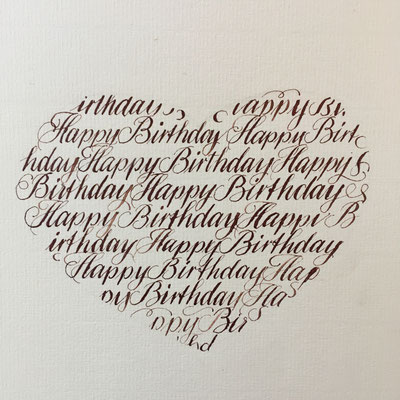 irthday appy Bi
Happy Birthday Happy Birt
hday Happy Birthday Happy
Birthday Happy Birthday
Happy Birthday Happi B
irthday Happy Birthday
Happy Birthday Hap
py Birthday Ha
ppy Birt
hd